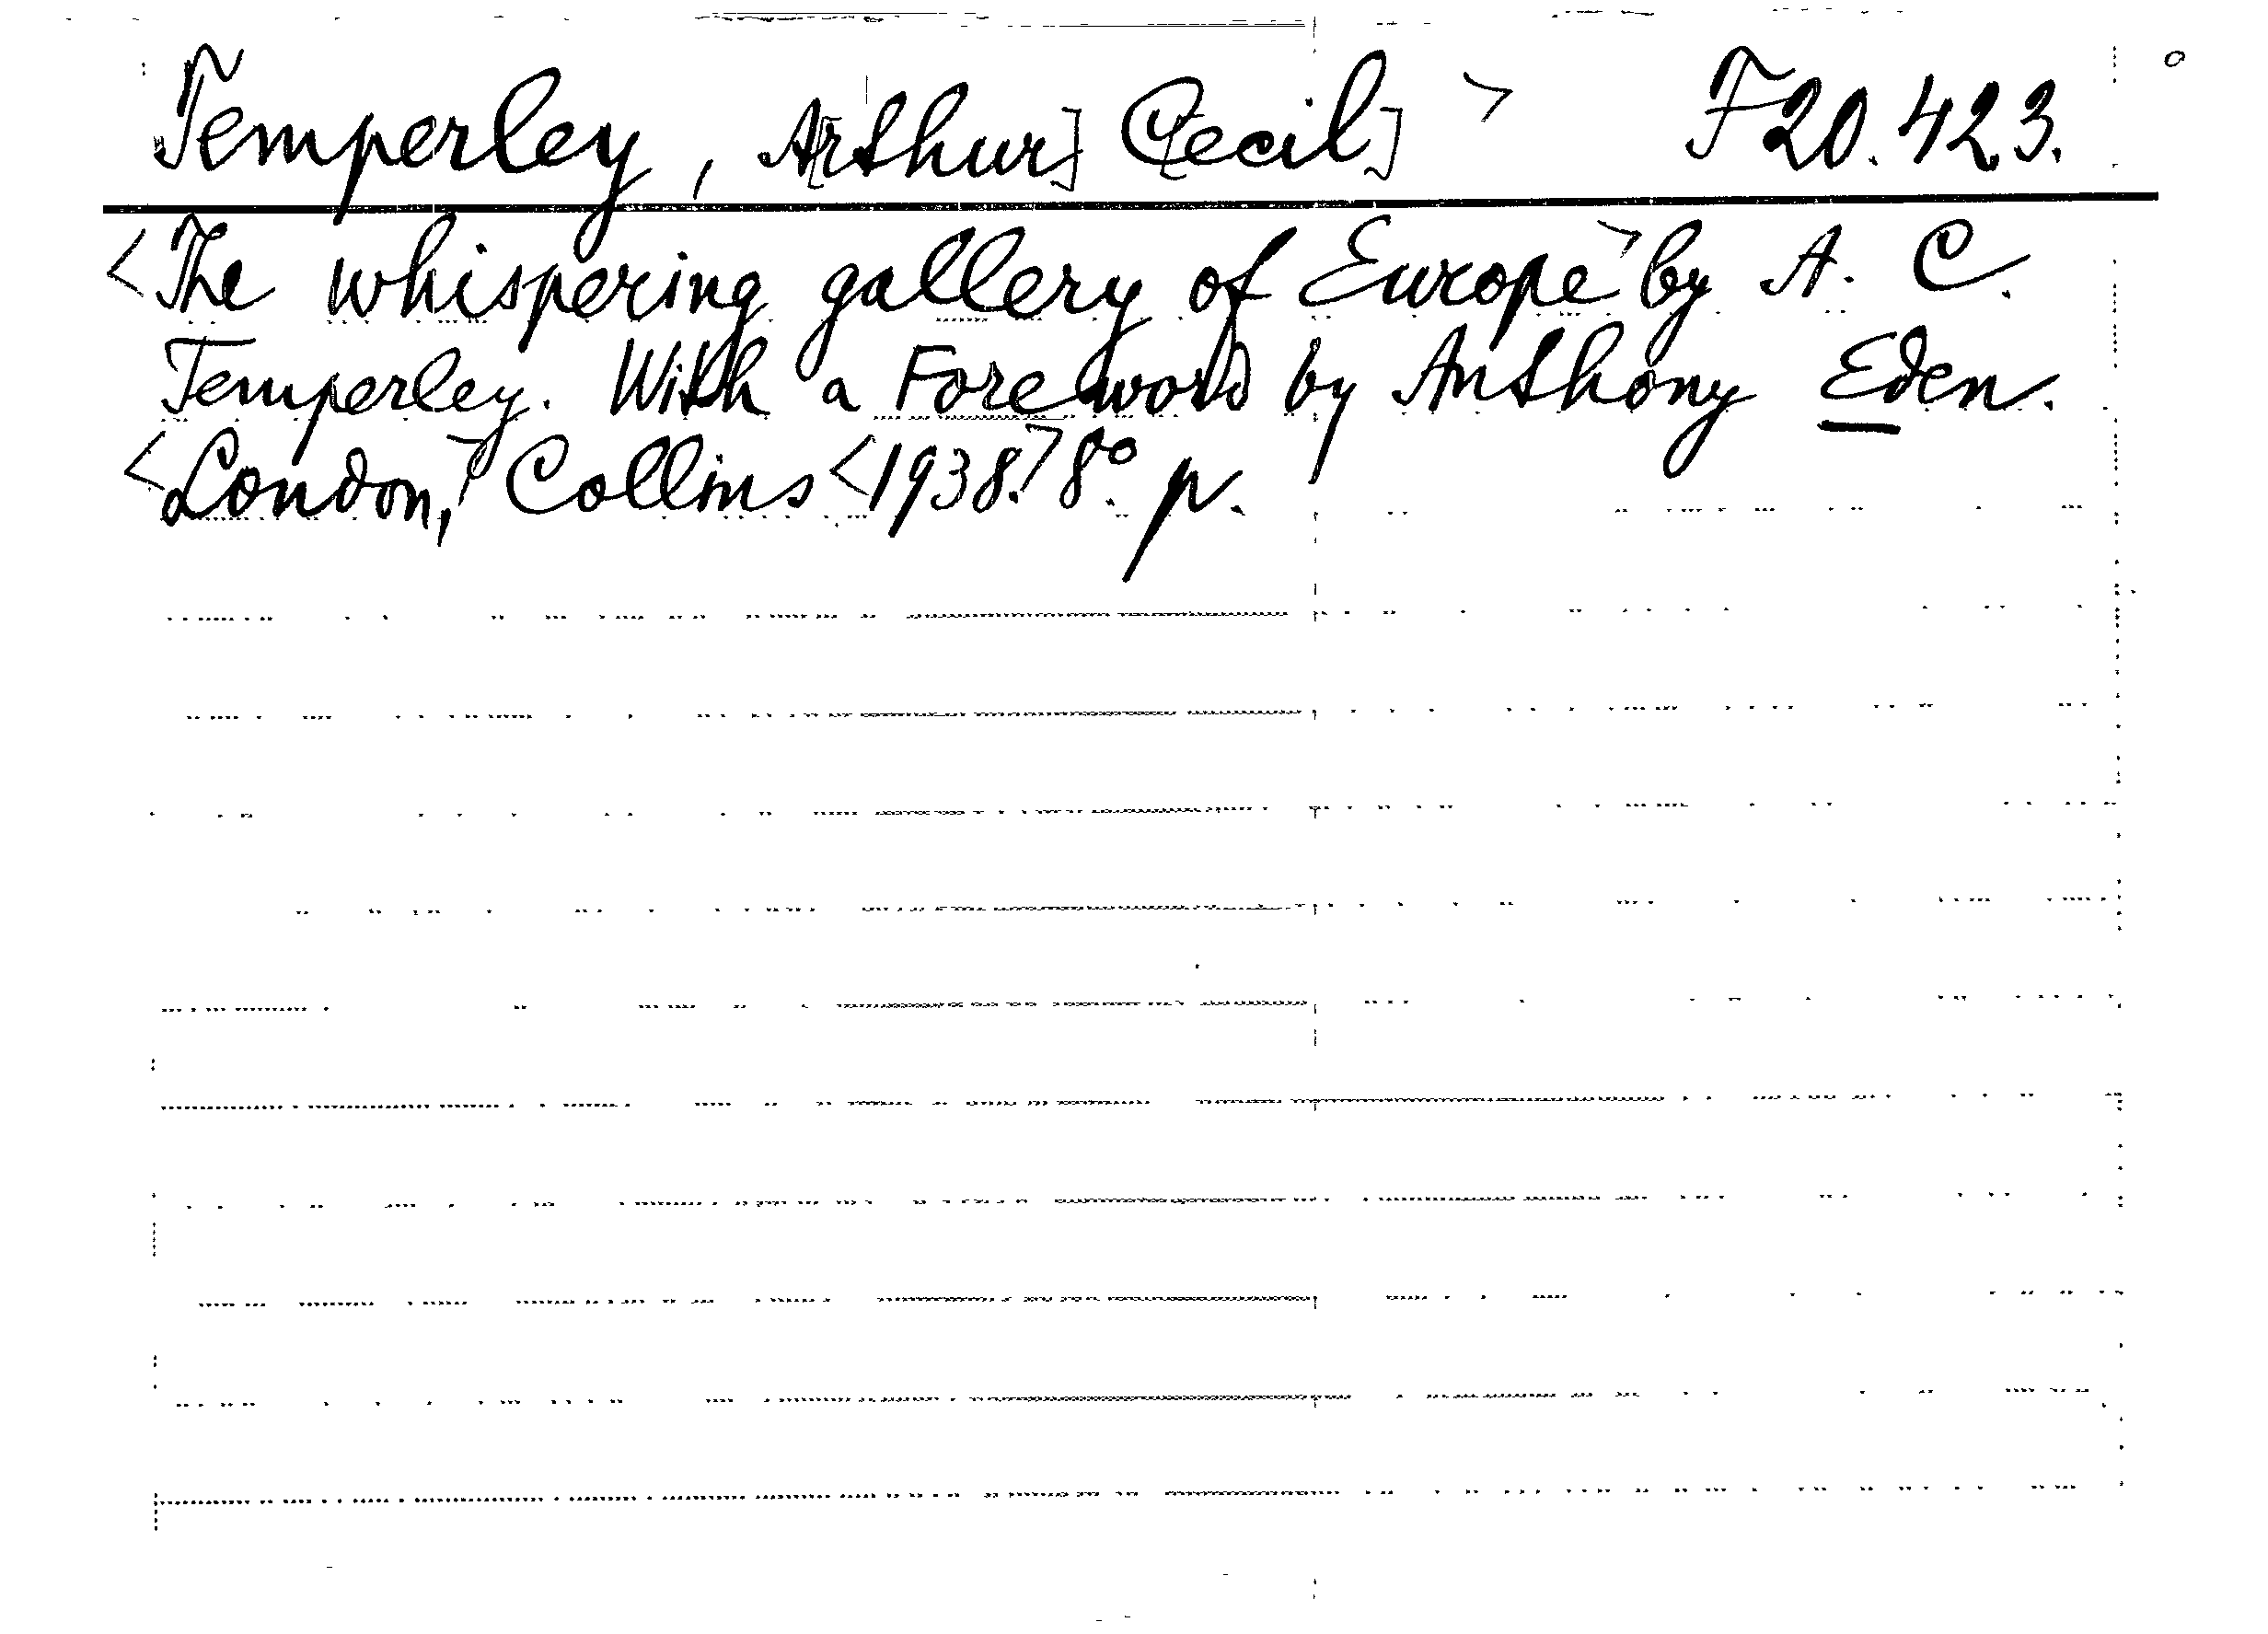 Temperley, A[rthur] C[ecil] > F 20.423.
<The whispering gallery of Europe> by A. C.
Temperley. With a Foreword by Anthony Eden.
<London,> Collins <1938.> 8°. p.